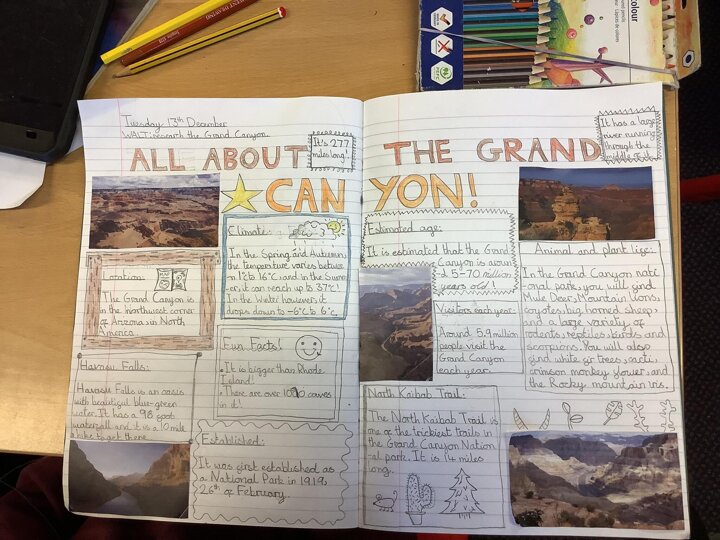 Tuesday 13th December
WALT: research the Grand Canyon.
ALL ABOUT THE GRAND
CANYON!
It's 277
miles long!
It has a large
river running
through the
middle of it
Location:
The Grand Canyon is
in the Northwest corner
of Arizona in North
America.
Climate:
In the Spring and Autumn
the temperature varies between
16°C and in the Summ-
er, it can reach up to 37°C!
In the Winter however, it
drops down to -6°C to 6°c.
Havasu Falls:
Havasu Falls is an oasis
with beautiful blue-green
water. It has a 98 foot
waterfall and it is a 10 mile
hike to get there.
Fun Facts!
• It is bigger than Rhode
Island!
• There are over 1000 caves
in it!
Established:
It was first established as
a National Park in 1919,
26th of February.
Estimated age:
It is estimated that the Grand
Canyon is around
5-70 million
years old!
Visitors each year:
Around 5.9 million
people visit the
Grand Canyon
each year.
North Kaibab Trail:
The North Kaibab Trail is
one of the trickiest trails in
the Grand Canyon Nation
-al park. It is 14 miles
long.
Animal and plant life:
In the Grand Canyon nati
-onal park, you will find
Mule Deer, Mountain lions,
coyotes, big horned sheep
and a large variety of
rodents, reptiles, birds and
scorpions. You will also
find white fir trees, cacti,
crimson monkey flower, and
the Rocky mountain iris.
colour